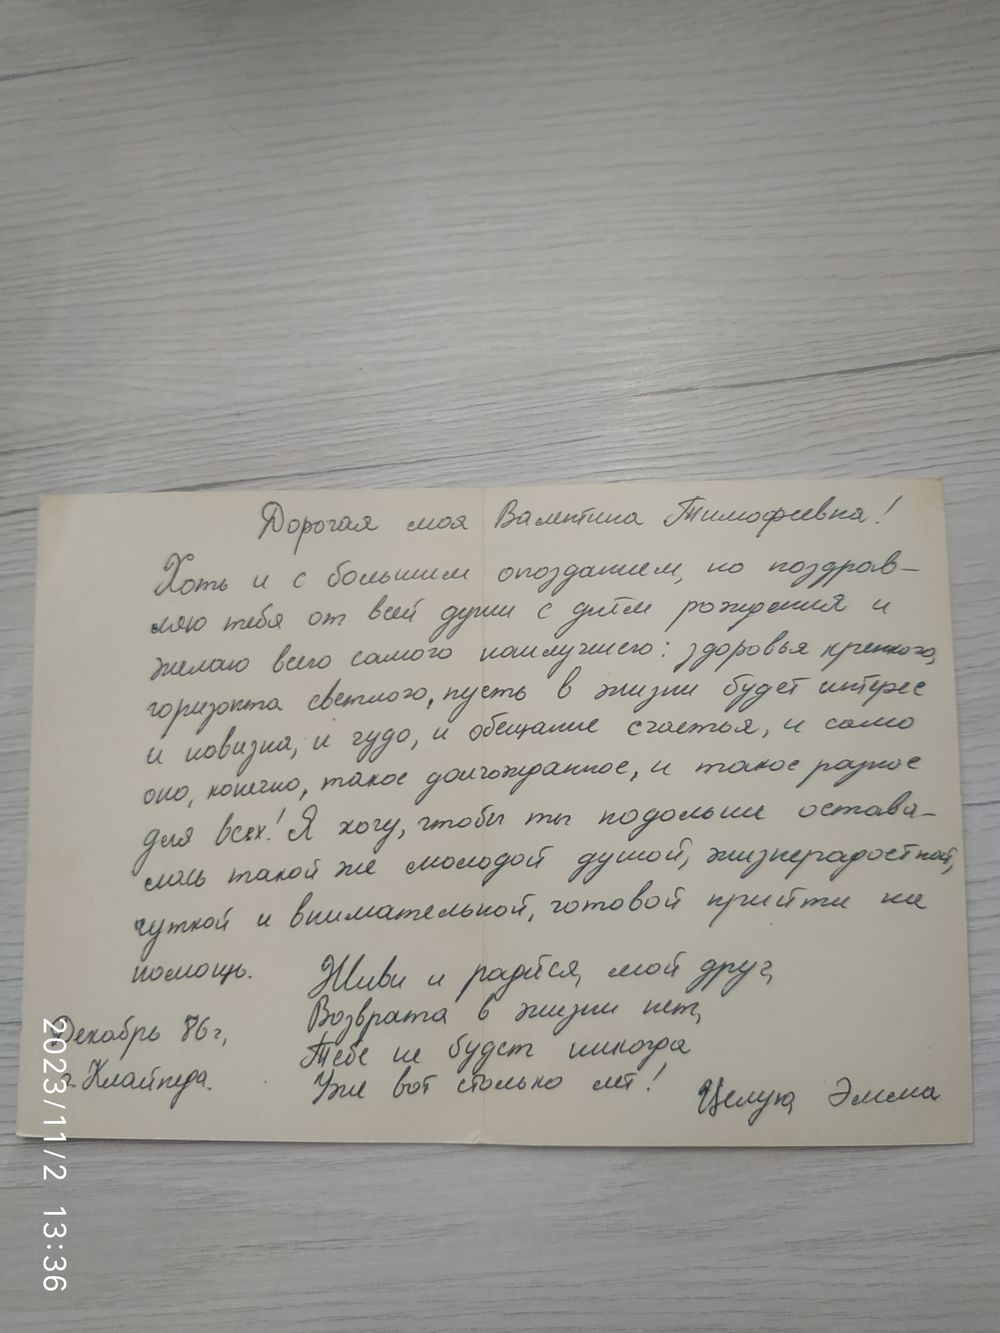 Дорогая моя Валентина Тимофеевна!
Хоть и с большим опозданием, но поздрав-
ляю тебя от всей души с днём рождения и
желаю всего самого наилучшего: здоровья крепкого,
горизонта светлого, пусть в жизни будет интерес
и новизна, и чудо, и обещание счастья, и само
оно, конечно, такое долгожданное, и такое разное
для всех! Я хочу, чтобы ты подольше остава-
лась такой же молодой душой, жизнерадостной,
чуткой и внимательной, готовой прийти на
помощь.
Живи и радуйся, мой друг,
Возврата в жизни нет,
Тебе не будет никогда
Уже вот столько лет!
Декабрь 86г,
г. Клайпеда.
Целую, Эмма
2023/11/2 13:36